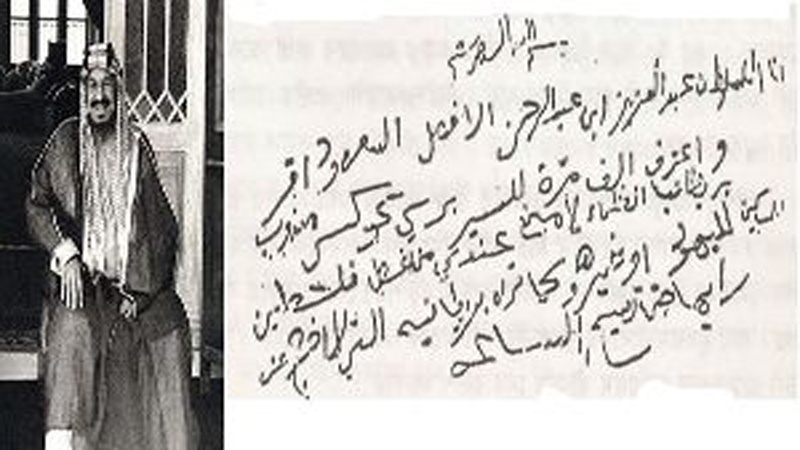 بسم الله الرحمن الرحيم
انا السلطان عبد العزيز ابن عبد الرحمن ال فيصل السعود اقر
واعترف الف مرة للسير برسي كوكس مندوب
بريطانيا العظماء لا مانع عندي فلسطين
لليهود او غيرهم وكما تراه بريطانيه التي لا اخرج عن
رايها حتى تصيح الساعة